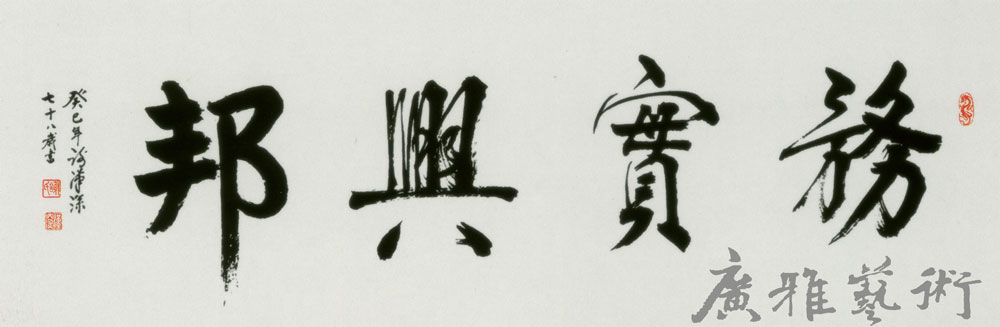 務實興邦
癸巳年
七十八歲書
廣雅藝術